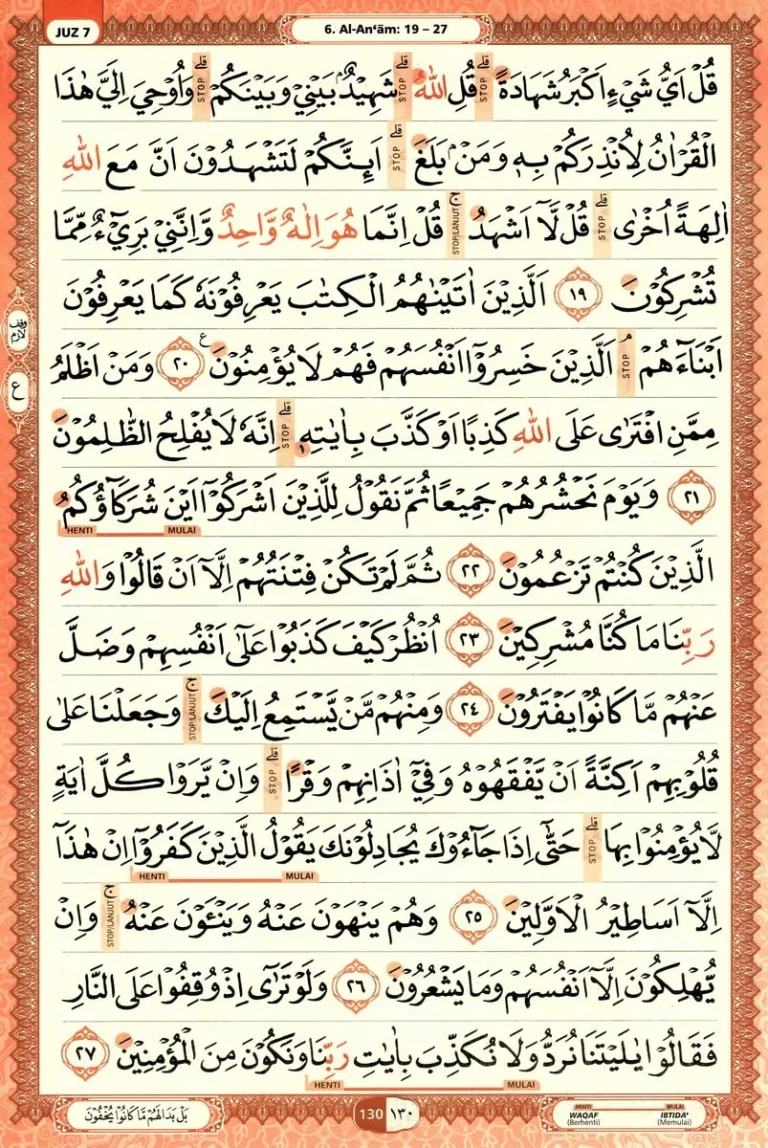 JUZ 7
6. Al-An‘ām: 19 – 27
قُلْ اَيُّ شَيْءٍ اَكْبَرُ شَهَادَةًۗ قلى STOP قُلِ اللّٰهُ ۗ قلى STOP شَهِيْدٌۢ بَيْنِيْ وَبَيْنَكُمْ ۗ قلى STOP وَاُوْحِيَ اِلَيَّ هٰذَا
الْقُرْاٰنُ لِاُنْذِرَكُمْ بِهٖ وَمَنْۢ بَلَغَ قلى STOP اَىِٕنَّكُمْ لَتَشْهَدُوْنَ اَنَّ مَعَ اللّٰهِ
اٰلِهَةً اُخْرٰى قلى STOP قُلْ لَّآ اَشْهَدُ ج STOP/LANJUT قُلْ اِنَّمَا هُوَ اِلٰهٌ وَّاحِدٌ وَّاِنَّنِيْ بَرِيْۤءٌ مِّمَّا
تُشْرِكُوْنَ ١٩ اَلَّذِيْنَ اٰتَيْنٰهُمُ الْكِتٰبَ يَعْرِفُوْنَهٗ كَمَا يَعْرِفُوْنَ
اَبْنَاۤءَهُمْ م STOP اَلَّذِيْنَ خَسِرُوْٓا اَنْفُسَهُمْ فَهُمْ لَا يُؤْمِنُوْنَ ع ٢٠ وَمَنْ اَظْلَمُ
مِمَّنِ افْتَرٰى عَلَى اللّٰهِ كَذِبًا اَوْ كَذَّبَ بِاٰيٰتِهٖ قلى STOP اِنَّهٗ لَا يُفْلِحُ الظّٰلِمُوْنَ
٢١ وَيَوْمَ نَحْشُرُهُمْ جَمِيْعًا ثُمَّ نَقُوْلُ لِلَّذِيْنَ اَشْرَكُوْٓا اَيْنَ شُرَكَاۤؤُكُمُ
MULAI HENTI
الَّذِيْنَ كُنْتُمْ تَزْعُمُوْنَ ٢٢ ثُمَّ لَمْ تَكُنْ فِتْنَتُهُمْ اِلَّآ اَنْ قَالُوْا وَاللّٰهِ
رَبِّنَا مَا كُنَّا مُشْرِكِيْنَ ٢٣ اُنْظُرْ كَيْفَ كَذَبُوْا عَلٰٓى اَنْفُسِهِمْ وَضَلَّ
عَنْهُمْ مَّا كَانُوْا يَفْتَرُوْنَ ٢٤ وَمِنْهُمْ مَّنْ يَّسْتَمِعُ اِلَيْكَ ج STOP/LANJUT وَجَعَلْنَا عَلٰى
قُلُوْبِهِمْ اَكِنَّةً اَنْ يَّفْقَهُوْهُ وَفِيْٓ اٰذَانِهِمْ وَقْرًا قلى STOP وَاِنْ يَّرَوْا كُلَّ اٰيَةٍ
لَّا يُؤْمِنُوْا بِهَا قلى STOP حَتّٰٓى اِذَا جَاۤءُوْكَ يُجَادِلُوْنَكَ يَقُوْلُ الَّذِيْنَ كَفَرُوْٓا اِنْ هٰذَآ
MULAI HENTI
اِلَّآ اَسَاطِيْرُ الْاَوَّلِيْنَ ٢٥ وَهُمْ يَنْهَوْنَ عَنْهُ وَيَنْـَٔوْنَ عَنْهُ ج STOP/LANJUT وَاِنْ
يُّهْلِكُوْنَ اِلَّآ اَنْفُسَهُمْ وَمَا يَشْعُرُوْنَ ٢٦ وَلَوْ تَرٰٓى اِذْ وُقِفُوْا عَلَى النَّارِ
فَقَالُوْا يٰلَيْتَنَا نُرَدُّ وَلَا نُكَذِّبَ بِاٰيٰتِ رَبِّنَا وَنَكُوْنَ مِنَ الْمُؤْمِنِيْنَ ٢٧
MULAI HENTI
وقف لازم
ع
بَلْ بَدَا لَهُمْ مَّا كَانُوْا يُخْفُوْنَ
130 ١٣٠
HENTI MULAI
WAQAF IBTIDA'
(Berhenti) (Memulai)